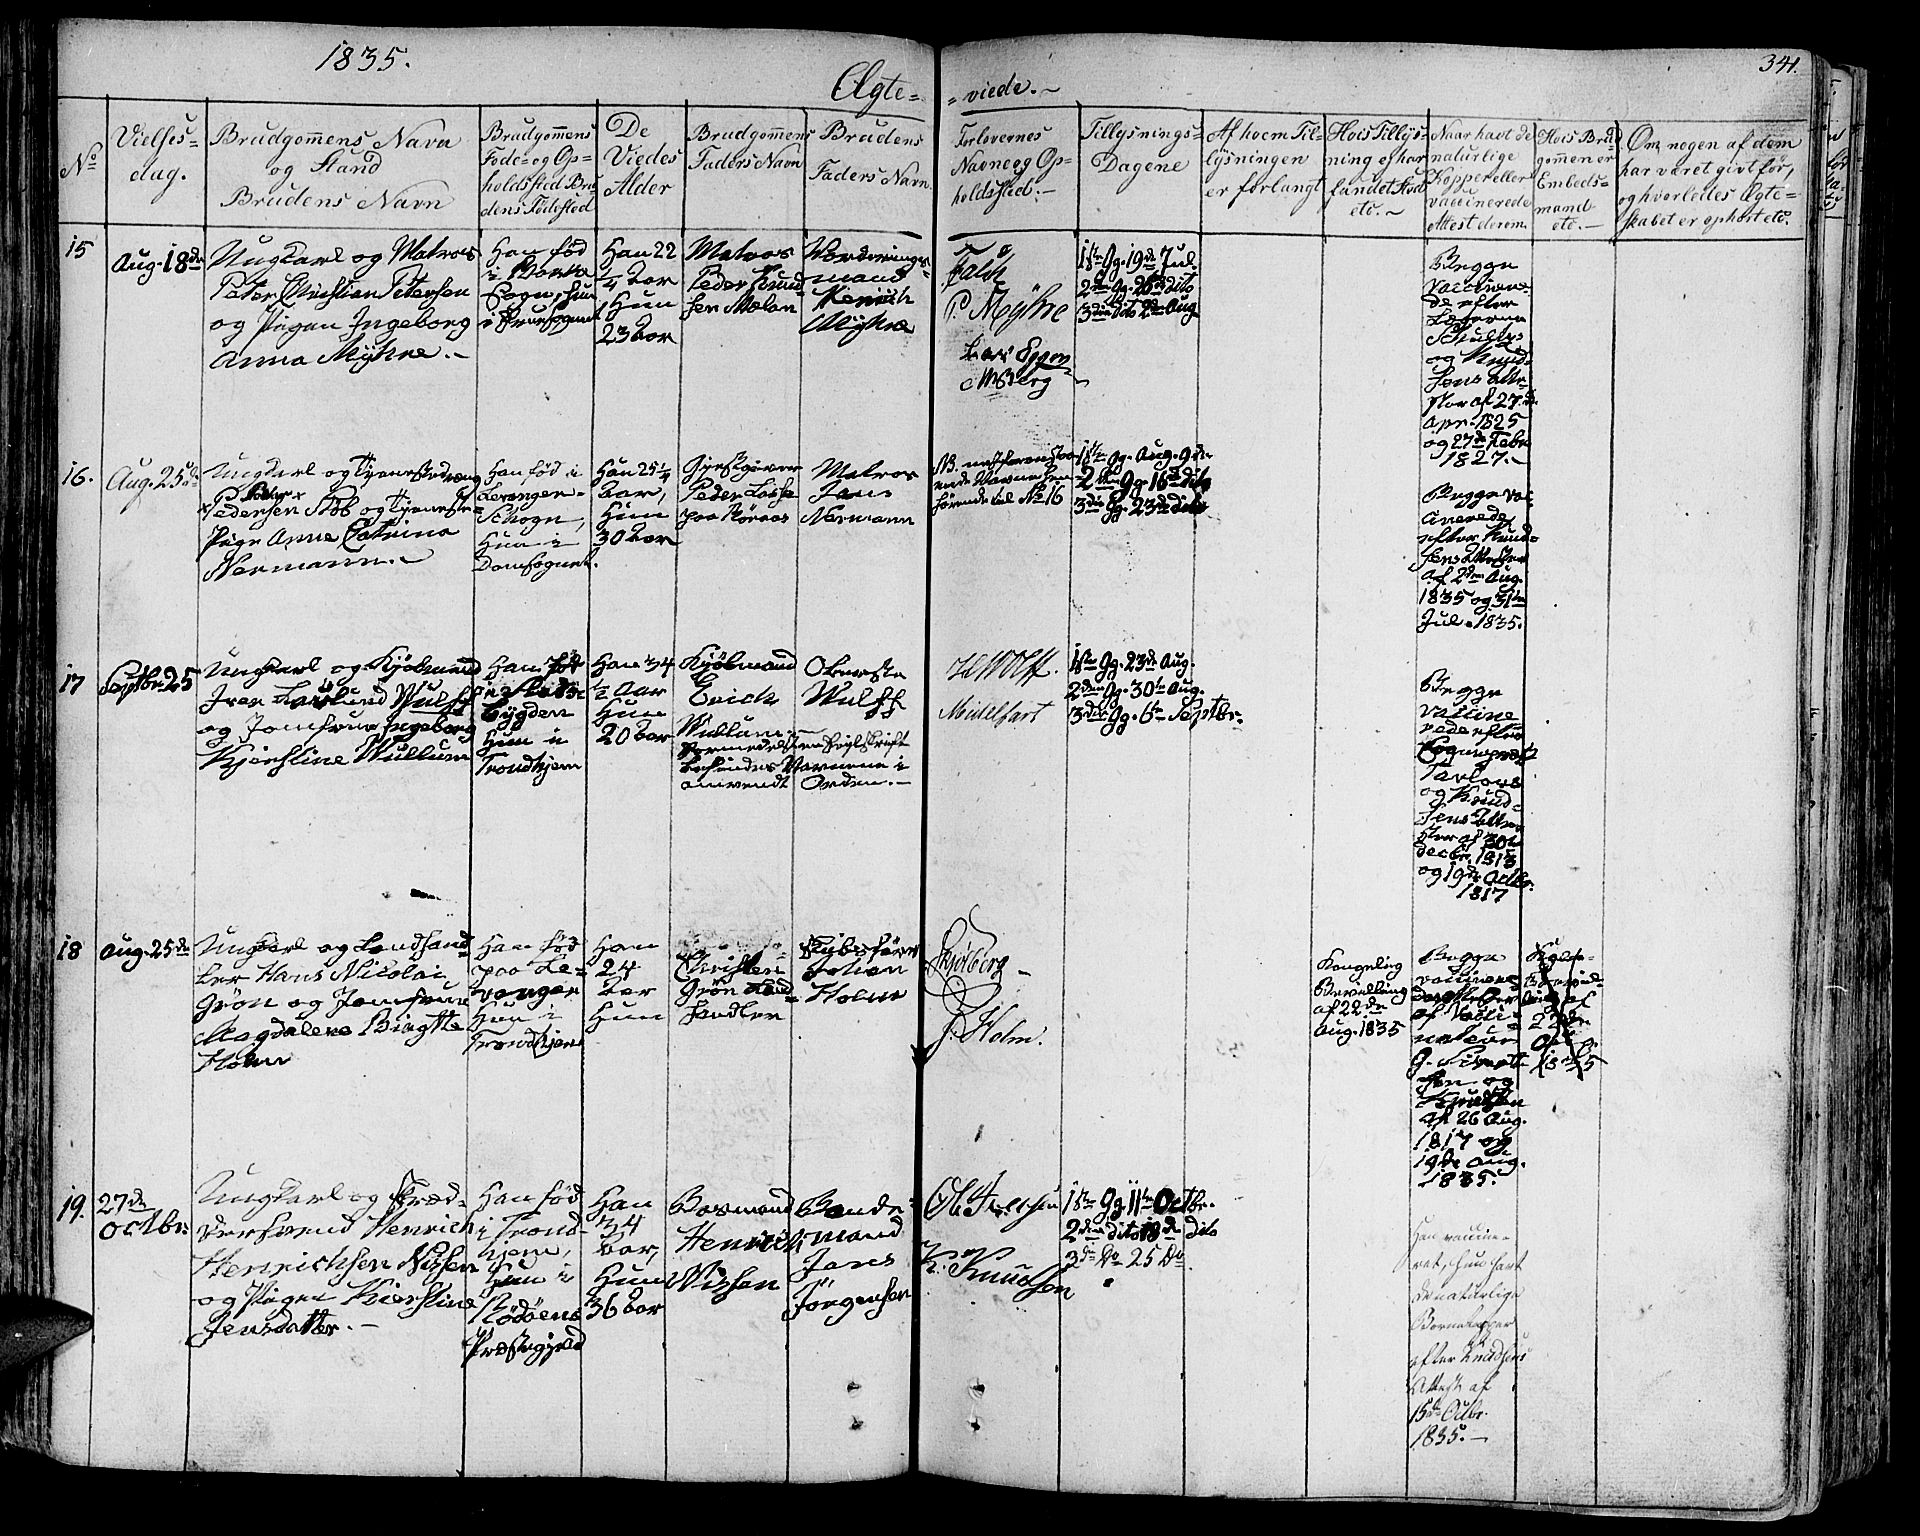 1835.
341.
Ægte=
=viede.~
No
Vielses-
dag.
Brudgom̄ens Navn
og Stand
Brudens Navn
Brudgom̄ens
Føde- og Op-
holdssted Bru
dens Fødested
De
Viedes
Alder
Brudgom̄ens
Faders Navn
Brudens
Faders Navn.
Forlovernes
Navne og Op-
holdssted.-
Tillysnings-
Dagene
Af hvem Til-
lysningen
er forlangt
Hvis Tillys-
ning ej har
fundet Sted
etc.~
Naar havt de
naturlige
Kopper eller
vaccinerede
Attest derom.
Hvis Brud
gom̄en er
Embeds-
mand
etc.-
Om nogen af dem
har været givt før,
og hvorledes Ægte-
skabet er ophørt etc.
15
Aug. 18de
Ungkarl og Matros
Peter Christian Petersen
og Pigen Ingeborg
Anna Myhre.-
Han fød
i Sogn, hun
i
Han 22
1/4 Aar
Hun
23 Aar
Matros
Peder Knud-
sen
mand
Henrich
Myhre
Falch
P. Myhre
Lars Eggen
Berg
1ste Gg. 19de Jul.
2den Gg. 26de dito
3die dito 2den Aug.
Begge
vaccinere-
de efter
Schultz
og Knud-
sens Atte-
ster af 27de
Apr. 1825
og 27de Febr.
1827.-
16.
Aug. 25de
Ungkarl og Tjenestedreng
Pedersen og Tjeneste-
Pige Anne Catrina
Nermann.-
Han fød i
Levanger-
Schogn,
Hun i
Domsognet.
Han 25 1/4
Aar,
Hun
30 Aar
Peder
paa Røraas
Matros
Jens
Nermann
NB. nestforestaa-
ende Navne hen-
hørende til No 16
1ste Gg. Aug. 9de
2den Gg. 16de dito
3die Gg. 23de dito
Begge vac-
cinerede
efter Knud-
sens Attester
af 2den Aug.
1835 og 31te
Jul. 1835.
17
Septbr. 25
Ungkarl og Kjøbmand
Iver Wulff
og Jomfrue Ingeborg
Kjerstine Wullum
Han fød
Bygden
Hun i
Trondhjem
Han 34
1/2 Aar
Hun
20 Aar
Kjøbmand
Erich
Wullum.-
Formedelst en Feilskrift
befindes Navnene i
omvendt Orden.-
Oberste
Wulff
Wolff.
Midelfart
1ste Gg. 23de Aug.
2den Gg. 30te Aug.
3die Gg. 6te Septbr.
Begge
vaccine-
rede efter
og Knud-
sens Atte-
ster af 30te
decbr. 1813
og 19de Octbr.
1817
18
Aug. 25de
Ungkarl og Landhand-
ler Hans Nicolai
Grøn og Jomfrue
Magdalene Birgitte
Holm
Han fød
paa Le-
vanger
Hun i
Trondhjem
Han
24
Aar
Hun
Christen
Grøn Land-
handler
Skibsfører
Johan
Holm
Skjølberg
J. Holm.
Kongelig
Bevilling
af 22de
Aug. 1835
Begge
vaccinere-
de efter
af Vacci-
nateur
og
Knudsen
af 26 Aug.
1817 og
19de Aug.
1835.
22de
19.
27de
Octbr.
Ungkarl og Skræd-
dersvend Henrich
Henrichsen Nissen
og Pigen Kierstine
Jensdatter.-
Han fød
i Trond-
hjem,
Hun i
Rødøens
Præstegjeld
Han
34
Aar,
Hun
36 Aar
Bormand
Henrich
Nissen
Bonde-
mand
Jens
Jørgensen
K. Knudsen
1ste Gg. 11te Octbr.
2den dito 18de dito
3die Do 25 Do.
Han vaccine-
ret, hun havt
de naturlige
Børnekopper
efter Knudsens
Attest af
15de Octbr.
1835.-